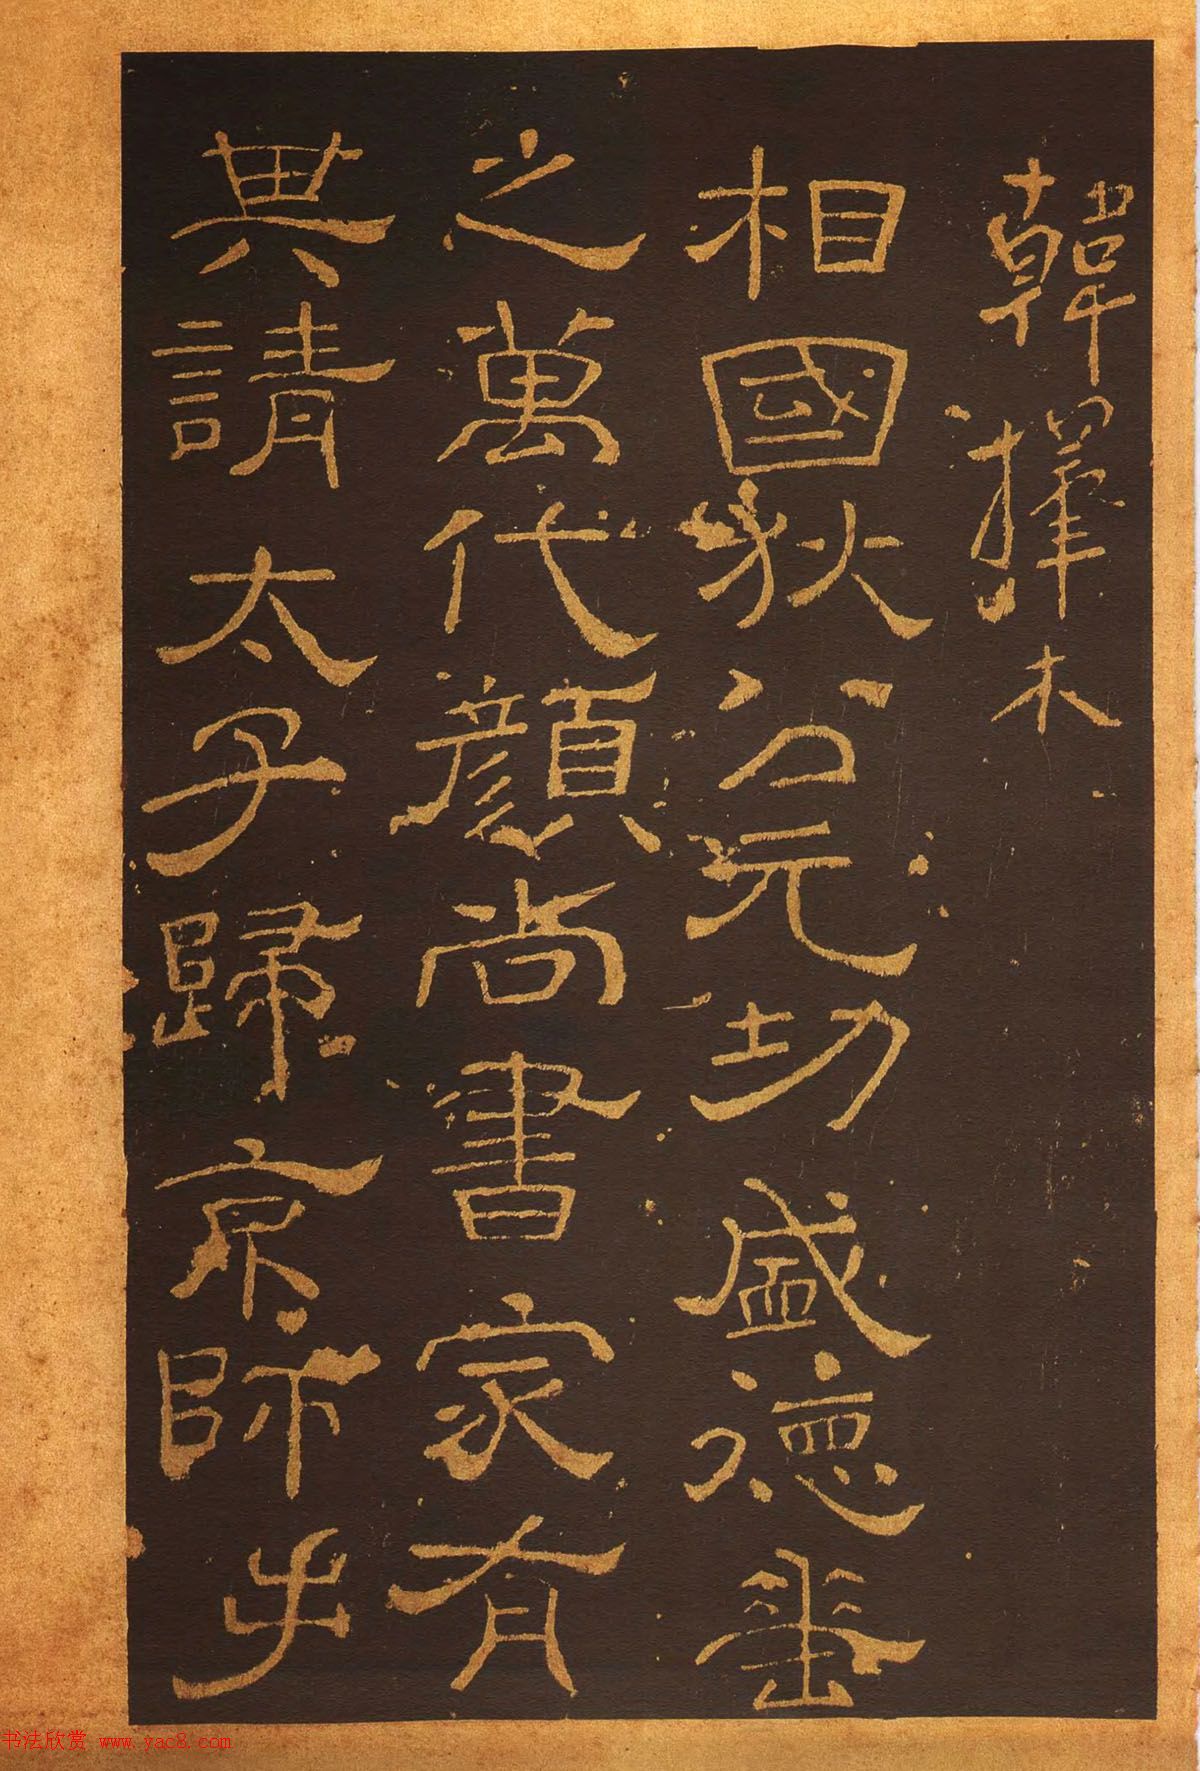 韓擇木
相國狄公元功盛德垂
之萬代顏尚書家有
其請太子歸京師手
书法欣赏 www.yac8.com